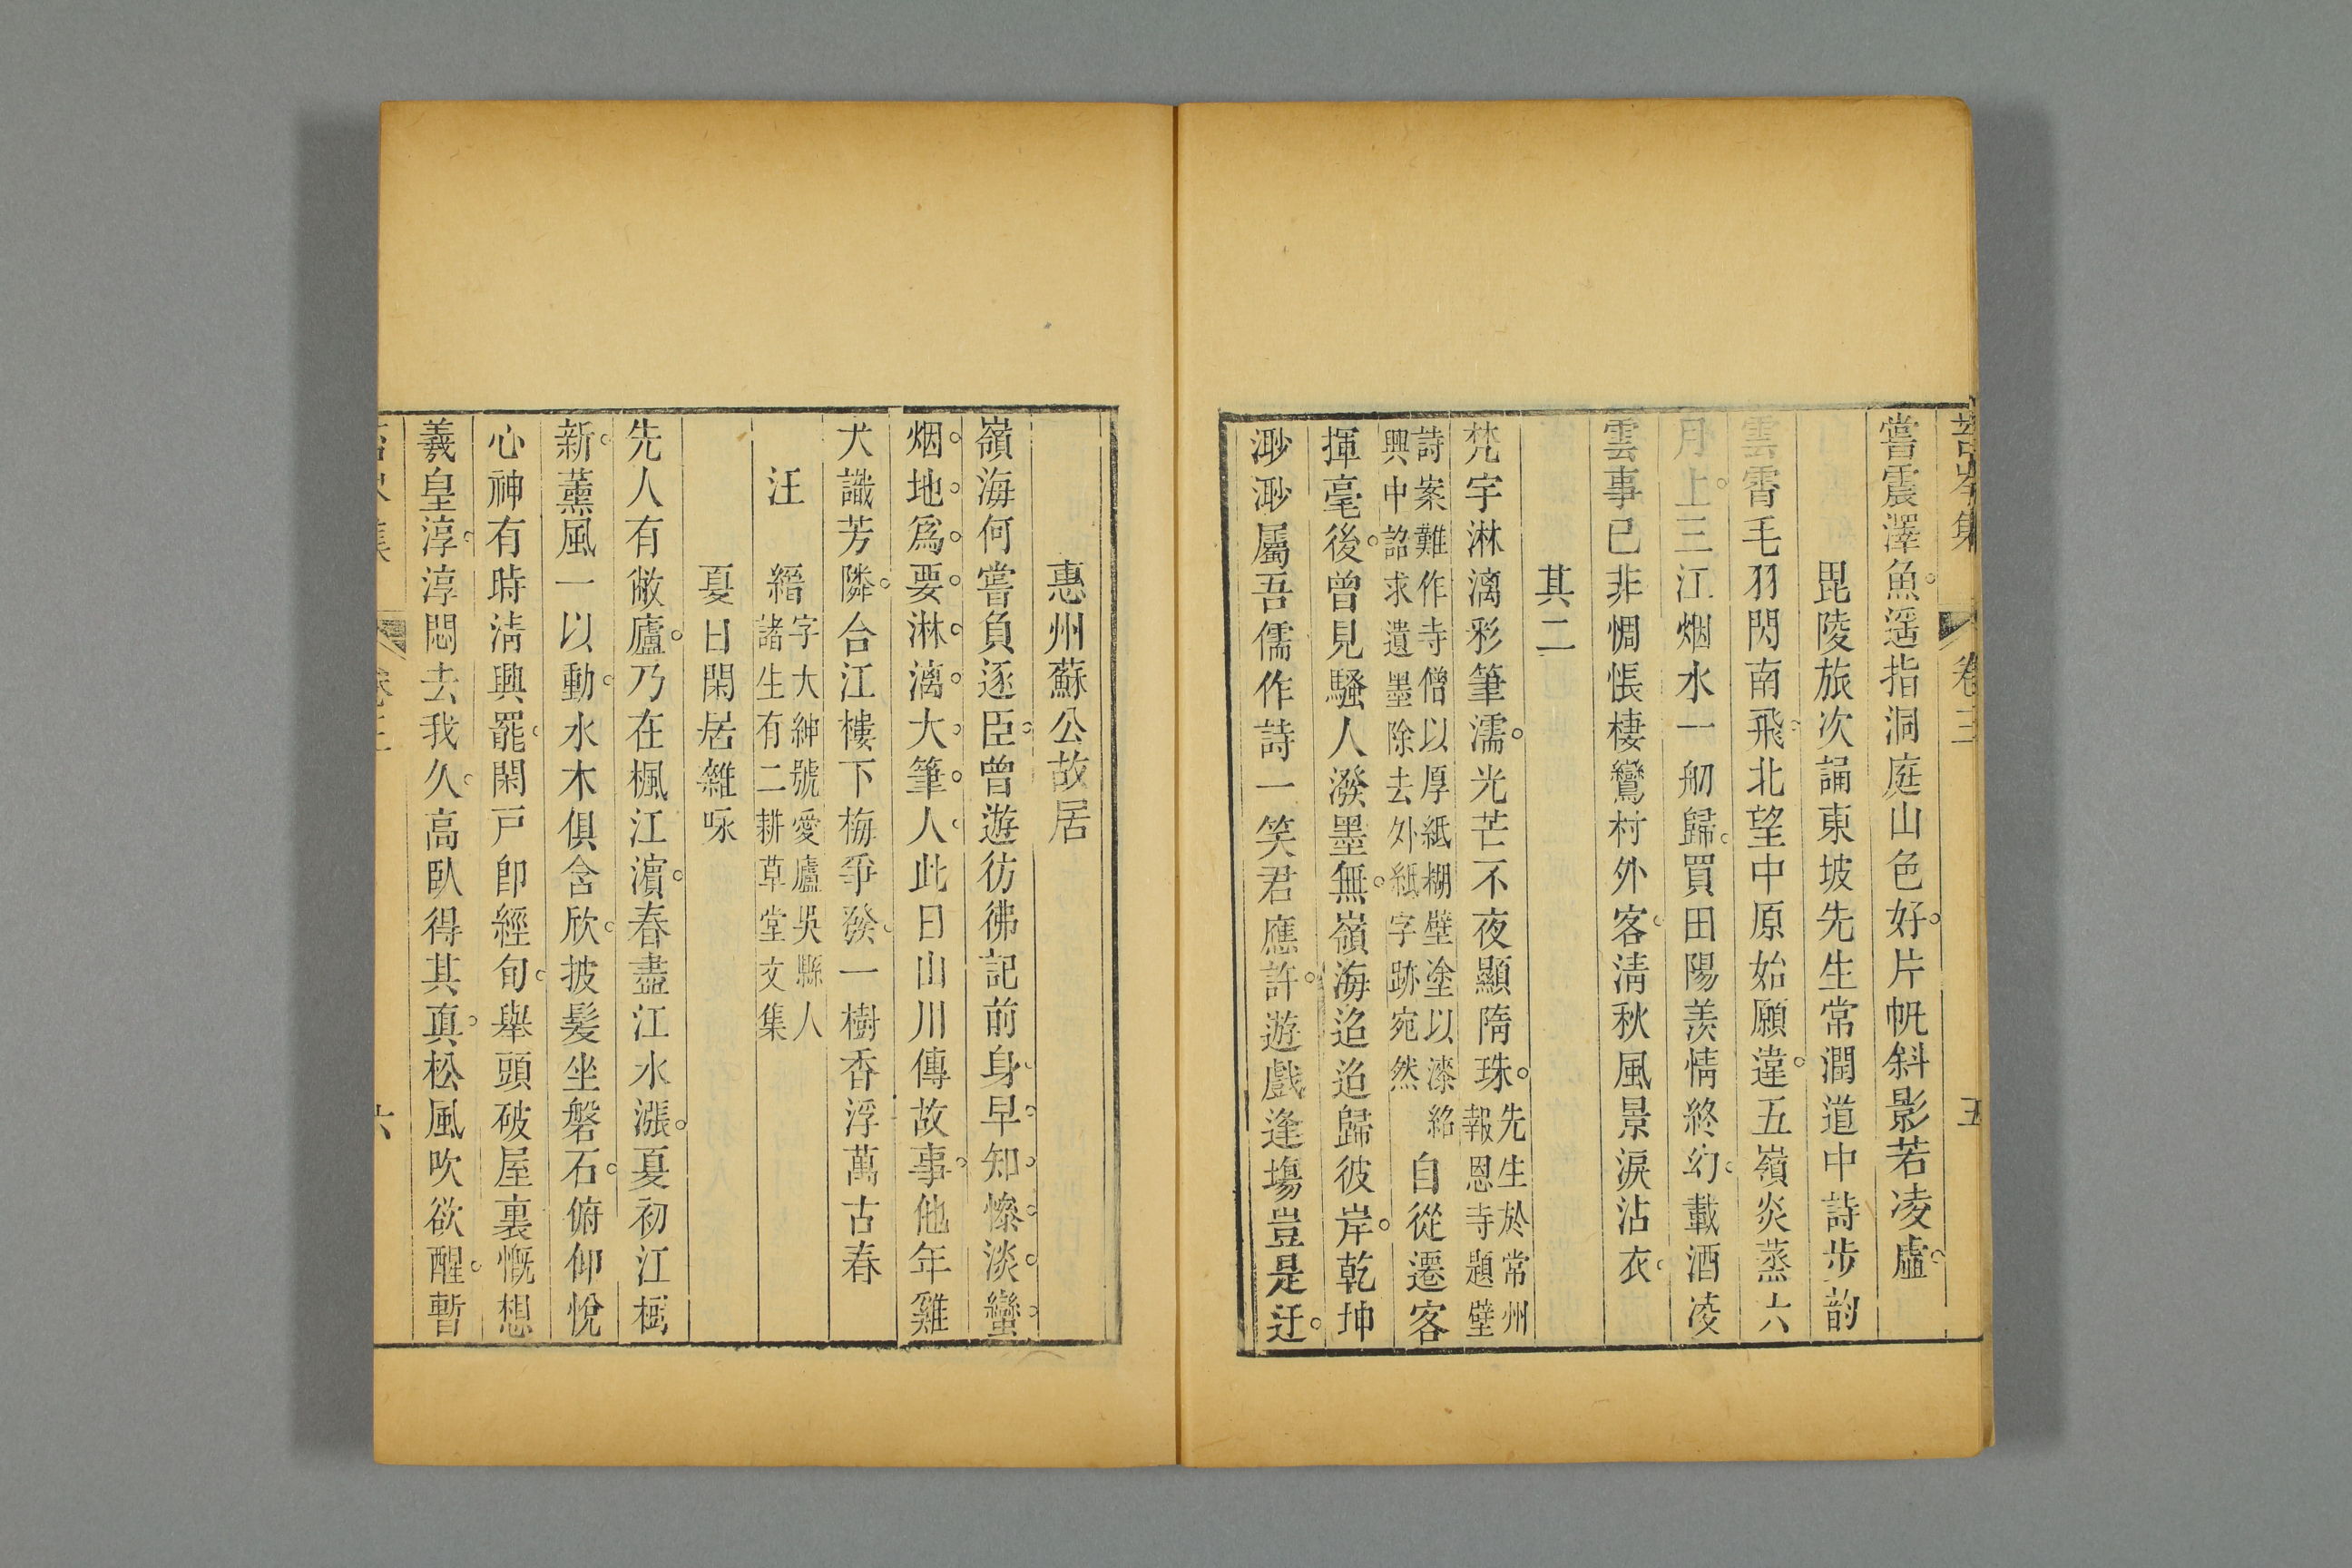 苔岑集 卷三 五
嘗震澤魚遥指洞庭山色好片帆斜影若凌虛
毘陵旅次誦東坡先生常潤道中詩步韵
雲霄毛羽閃南飛北望中原始願違五嶺炎蒸六
月上三江烟水一舠歸買田陽羨情終幻載酒凌
雲事已非惆悵棲鸞村外客淸秋風景淚沾衣
其二
梵宇淋漓彩筆濡光芒不夜顯隋珠先生於常州報恩寺題壁
詩案難作寺僧以厚紙糊壁塗以漆紹興中詔求遺墨除去外紙字跡宛然自從遷客
揮毫後曾見騷人潑墨無嶺海迢迢歸彼岸乾坤
渺渺屬吾儒作詩一笑君應許遊戲逢塲豈是迂
惠州蘇公故居
嶺海何嘗負逐臣曾遊彷彿記前身早知慘淡蠻
烟地爲要淋漓大筆人此日山川傳故事他年雞
犬識芳隣合江樓下梅爭發一樹香浮萬古春
汪縉字大紳號愛廬吳縣人諸生有二耕草堂文集
夏日閑居雜咏
先人有敝廬乃在楓江濵春盡江水漲夏初江樹
新薰風一以動水木俱含欣披髮坐磐石俯仰悅
心神有時淸興罷閑戸卽經旬舉頭破屋裏慨想
羲皇淳淳悶去我久高臥得其眞松風吹欲醒暫
六